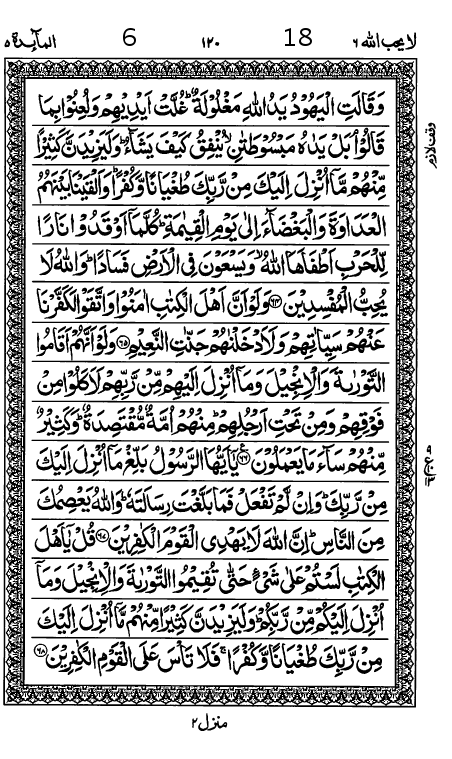 لا يحب الله ٦ 18 ١٢٠ 6 المآئدة ٥
وَقَالَتِ الْيَهُوْدُ يَدُ اللهِ مَغْلُوْلَةٌ ؕ غُلَّتْ اَيْدِيْهِمْ وَلُعِنُوْا بِمَا
قَالُوْا ۘ بَلْ يَدٰهُ مَبْسُوْطَتٰنِ ۙ يُنْفِقُ كَيْفَ يَشَآءُ ؕ وَلَيَزِيْدَنَّ كَثِيْرًا
مِّنْهُمْ مَّاۤ اُنْزِلَ اِلَيْكَ مِنْ رَّبِّكَ طُغْيَانًا وَّكُفْرًا ؕ وَاَلْقَيْنَا بَيْنَهُمُ
الْعَدَاوَةَ وَالْبَغْضَآءَ اِلٰى يَوْمِ الْقِيٰمَةِ ؕ كُلَّمَاۤ اَوْقَدُوْا نَارًا
لِّلْحَرْبِ اَطْفَاَهَا اللهُ ۙ وَيَسْعَوْنَ فِى الْاَرْضِ فَسَادًا ؕ وَاللهُ لَا
يُحِبُّ الْمُفْسِدِيْنَ ﴿٦٤﴾ وَلَوْ اَنَّ اَهْلَ الْكِتٰبِ اٰمَنُوْا وَاتَّقَوْا لَكَفَّرْنَا
عَنْهُمْ سَيِّاٰتِهِمْ وَلَاَدْخَلْنٰهُمْ جَنّٰتِ النَّعِيْمِ ﴿٦٥﴾ وَلَوْ اَنَّهُمْ اَقَامُوا
التَّوْرٰىةَ وَالْاِنْجِيْلَ وَمَاۤ اُنْزِلَ اِلَيْهِمْ مِّنْ رَّبِّهِمْ لَاَكَلُوْا مِنْ
فَوْقِهِمْ وَمِنْ تَحْتِ اَرْجُلِهِمْ ؕ مِنْهُمْ اُمَّةٌ مُّقْتَصِدَةٌ ؕ وَكَثِيْرٌ
مِّنْهُمْ سَآءَ مَا يَعْمَلُوْنَ ﴿٦٦﴾ يٰۤاَيُّهَا الرَّسُوْلُ بَلِّغْ مَاۤ اُنْزِلَ اِلَيْكَ
مِنْ رَّبِّكَ ؕ وَاِنْ لَّمْ تَفْعَلْ فَمَا بَلَّغْتَ رِسَالَتَهٗ ؕ وَاللهُ يَعْصِمُكَ
مِنَ النَّاسِ ؕ اِنَّ اللهَ لَا يَهْدِى الْقَوْمَ الْكٰفِرِيْنَ ﴿٦٧﴾ قُلْ يٰۤاَهْلَ
الْكِتٰبِ لَسْتُمْ عَلٰى شَىْءٍ حَتّٰى تُقِيْمُوا التَّوْرٰىةَ وَالْاِنْجِيْلَ وَمَاۤ
اُنْزِلَ اِلَيْكُمْ مِّنْ رَّبِّكُمْ ؕ وَلَيَزِيْدَنَّ كَثِيْرًا مِّنْهُمْ مَّاۤ اُنْزِلَ اِلَيْكَ
مِنْ رَّبِّكَ طُغْيَانًا وَّكُفْرًا ۚ فَلَا تَاْسَ عَلَى الْقَوْمِ الْكٰفِرِيْنَ ﴿٦٨﴾
وقف لازم
منزل ٢